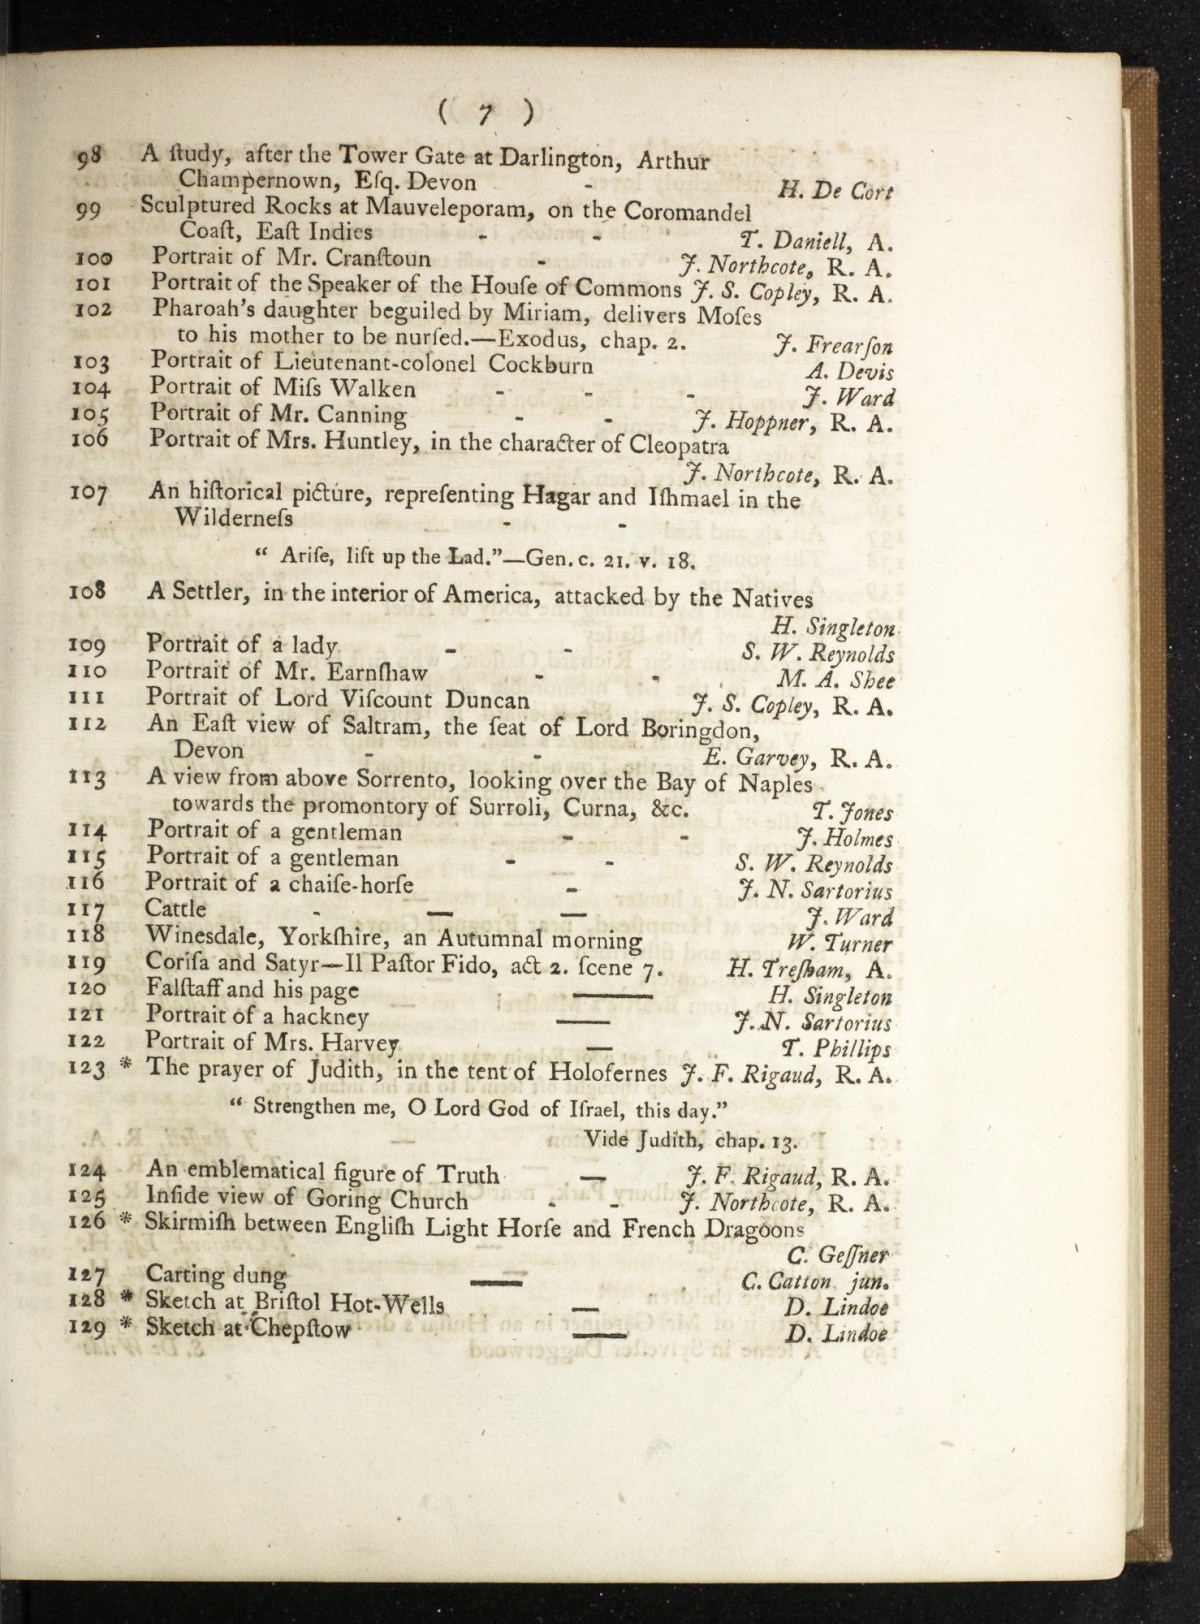 ( 7 )
98 A ſtudy, after the Tower Gate at Darlington, Arthur
Champernown, Eſq. Devon - H. De Cort
99 Sculptured Rocks at Mauveleporam, on the Coromandel
Coaſt, Eaſt Indies - - T. Daniell, A.
100 Portrait of Mr. Cranſtoun - J. Northcote, R. A.
101 Portrait of the Speaker of the Houſe of Commons J. S. Copley, R. A.
102 Pharoah's daughter beguiled by Miriam, delivers Moſes
to his mother to be nurſed.—Exodus, chap. 2. J. Frearſon
103 Portrait of Lieutenant-colonel Cockburn A. Devis
104 Portrait of Miſs Walken - - - J. Ward
105 Portrait of Mr. Canning - - J. Hoppner, R. A.
106 Portrait of Mrs. Huntley, in the character of Cleopatra
J. Northcote, R. A.
107 An hiſtorical picture, repreſenting Hagar and Iſhmael in the
Wilderneſs - -
“ Ariſe, lift up the Lad.”—Gen. c. 21. v. 18.
108 A Settler, in the interior of America, attacked by the Natives
H. Singleton
109 Portrait of a lady - - S. W. Reynolds
110 Portrait of Mr. Earnſhaw - - M. A. Shee
111 Portrait of Lord Viſcount Duncan J. S. Copley, R. A.
112 An Eaſt view of Saltram, the ſeat of Lord Boringdon,
Devon - - E. Garvey, R. A.
113 A view from above Sorrento, looking over the Bay of Naples
towards the promontory of Surroli, Curna, &c. T. Jones
114 Portrait of a gentleman - - J. Holmes
115 Portrait of a gentleman - - S. W. Reynolds
116 Portrait of a chaiſe-horſe - J. N. Sartorius
117 Cattle - — — J. Ward
118 Winesdale, Yorkſhire, an Autumnal morning W. Turner
119 Coriſa and Satyr—Il Paſtor Fido, act 2. ſcene 7. H. Treſham, A.
120 Falſtaff and his page — H. Singleton
121 Portrait of a hackney — J. N. Sartorius
122 Portrait of Mrs. Harvey — T. Phillips
123 * The prayer of Judith, in the tent of Holofernes J. F. Rigaud, R. A.
“ Strengthen me, O Lord God of Iſrael, this day.”
Vide Judith, chap. 13.
124 An emblematical figure of Truth — J. F. Rigaud, R. A.
125 Inſide view of Goring Church - - J. Northcote, R. A.
126 * Skirmiſh between Engliſh Light Horſe and French Dragoons
C. Geſſner
127 Carting dung — C. Catton jun.
128 * Sketch at Briſtol Hot-Wells — D. Lindoe
129 * Sketch at Chepſtow — D. Lindoe